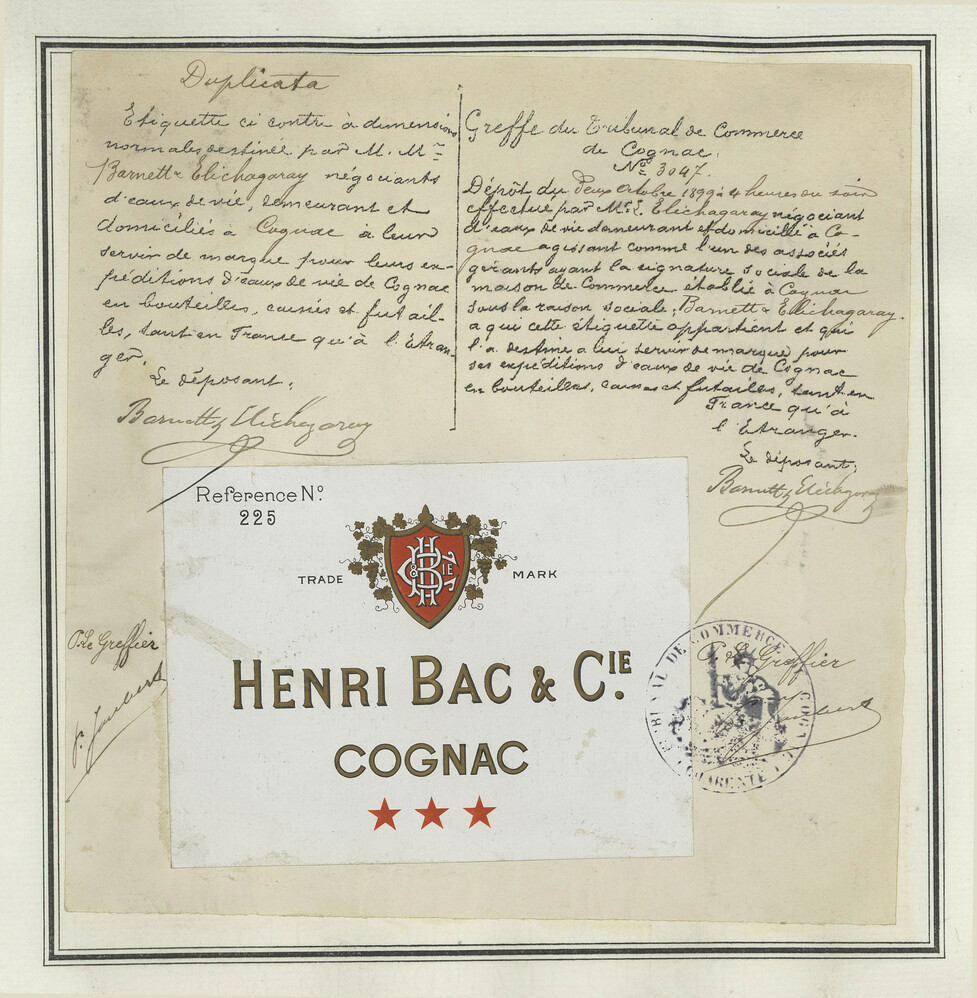 Duplicata
Etiquette ci contre à dimensions
normales destinée par M. Mrs
Barnett & Elichagaray négociants
d'eaux de vie, demeurant et
domiciliés à Cognac à leur
servir de marque pour leurs ex-
péditions d'eaux de vie de Cognac
en bouteilles, caisses et futail-
les, tant en France qu'à l'Etran-
ger.
Le déposant,
Barnett & Elichagaray
Greffe du Tribunal de Commerce
de Cognac.
No 3047.
Dépôt du Deux Octobre 1899 à 4 heures du soir
effectué par Mr. L. Elichagaray négociant
d'eaux de vie demeurant et domicilié à Co-
gnac agissant comme l'un des associés
gérants ayant la signature sociale de la
maison de Commerce établie à Cognac
sous la raison sociale, Barnett & Elichagaray.
a qui cette étiquette appartient et qui
l'a destine a lui servir de marque pour
ses expéditions d'eaux de vie de Cognac
en bouteilles, caisses et futailles, tant en
France qu'à
l'Etranger.
Le déposant,
Barnett & Elichagaray
Reference No.
225
TRADE MARK
H B & CIE
HENRI BAC & CIE.
COGNAC
P. Le Greffier
P. Joubert
P. Le Greffier
Joubert
TRIBUNAL DE COMMERCE DE COGNAC
CHARENTE